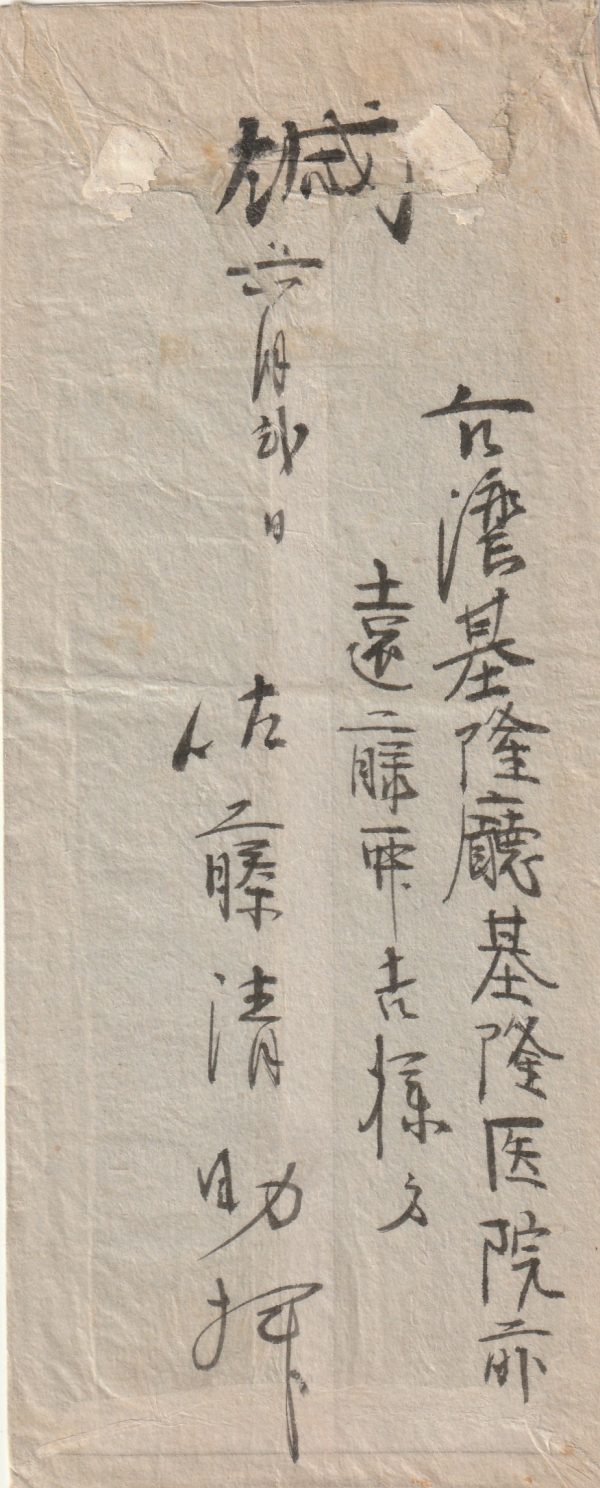 緘
台湾基隆廳基隆医院前
遠藤要吉様方
六月弐日
佐藤清助拝